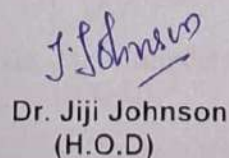 J. Johnson
Dr. Jiji Johnson
(H.O.D)